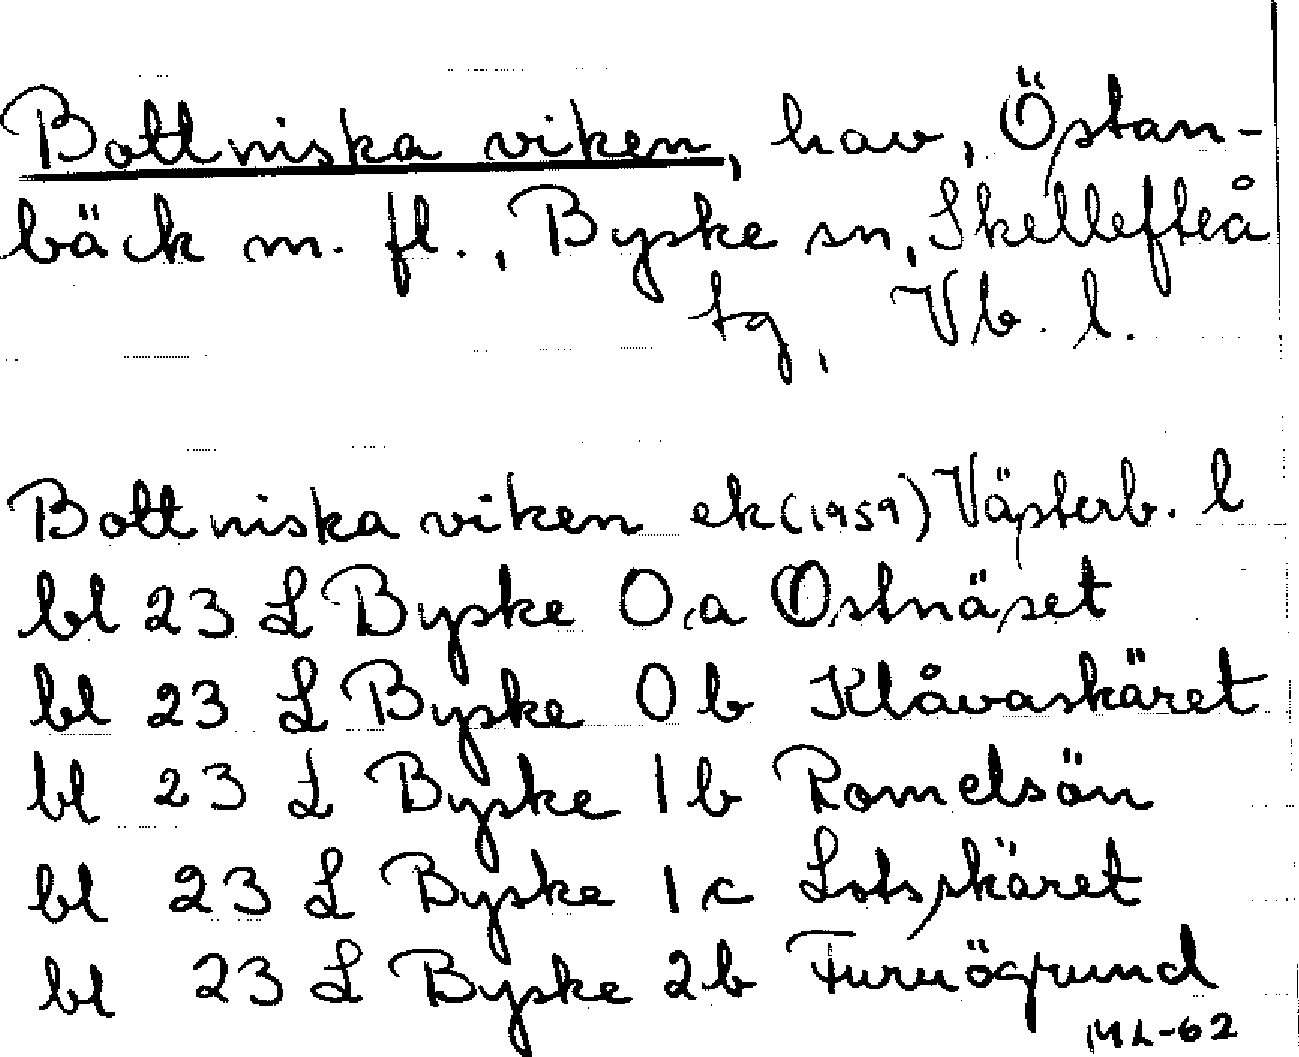 Bottniska viken, hav, Östan-
bäck m. fl., Byske sn, Skellefteå
tg, Vb. l.
Bottniska viken ek (1959) Västerb. l
bl 23 L Byske 0a Ostnäset
bl 23 L Byske 0b Klåvaskäret
bl 23 L Byske 1b Romelsön
bl 23 L Byske 1c Lotsskäret
bl 23 L Byske 2b Furuögrund
ML-62